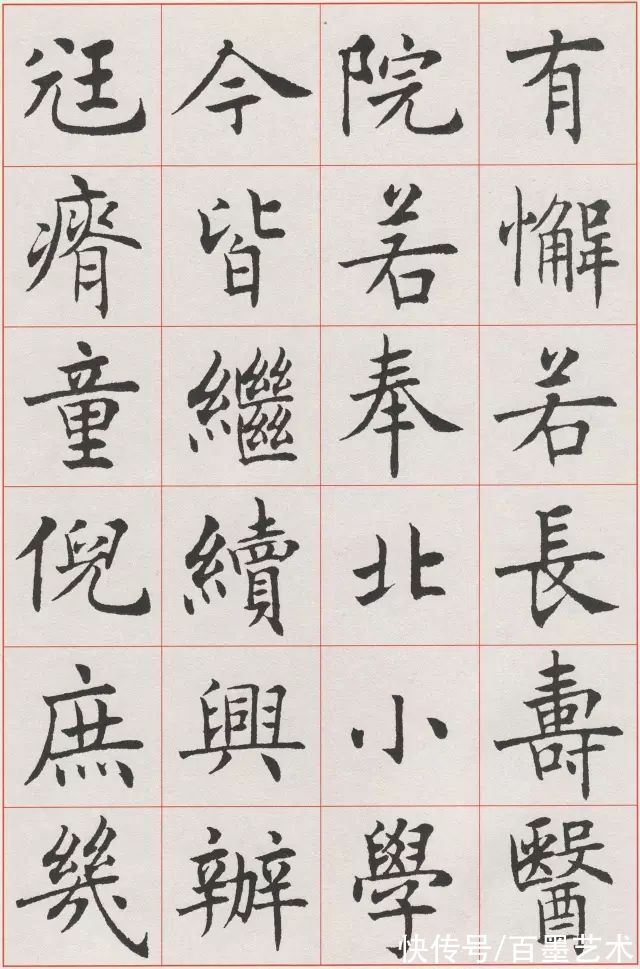 有懈若長壽醫
院若奉北小學
今皆繼續興辦
尪瘠童倪庶幾
快传号/百墨艺术